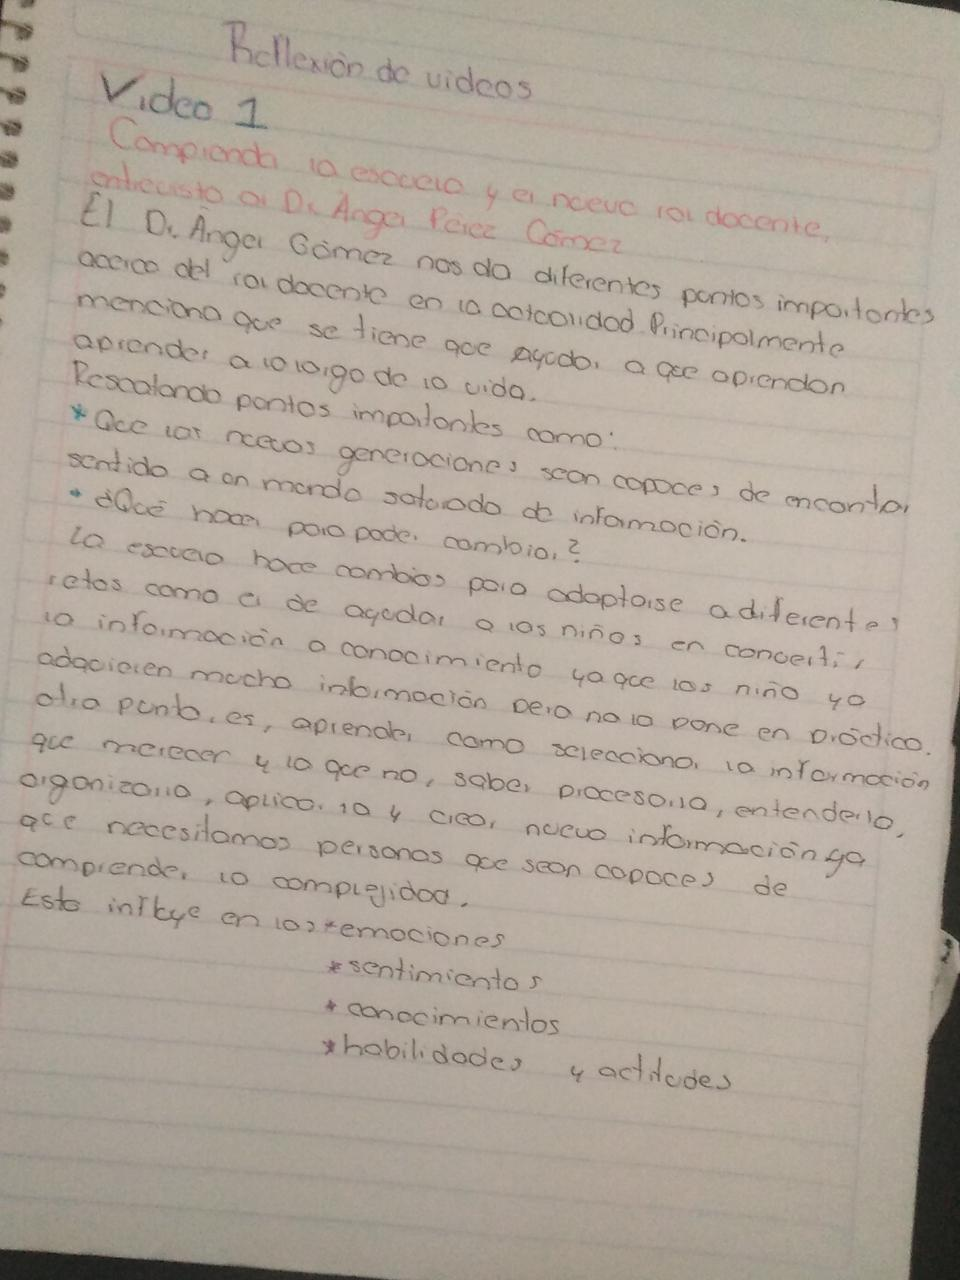 Reflexión de videos
Video 1
Comprenda la escuela y el nuevo rol docente,
entrevista al Dr. Ángel Pérez Gómez
Él Dr. Ángel Gómez nos da diferentes puntos importantes
acerca del rol docente en la actualidad. Principalmente
menciona que se tiene que ayudar a que aprendan
aprender a lo largo de la vida.
Rescatando puntos importantes como:
* Que las nuevas generaciones sean capaces de encontrar
sentido a un mundo saturado de información.
* ¿Qué hacer para poder cambiar?
La escuela hace cambios para adaptarse a diferentes
retos como el de ayudar a los niños en convertir
la información a conocimiento ya que los niño ya
adquieren mucha información pero no la pone en práctica.
otro punto, es, aprender como seleccionar la información
que merecer y la que no, saber procesarla, entenderla,
organizarla, aplicarla y crear nueva información ya
que necesitamos personas que sean capaces de
comprender la complejidad.
Esto influye en las * emociones
* sentimientos
* conocimientos
* habilidades y actitudes